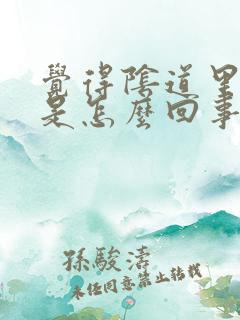 覺得陰道里
是怎麼回事
孫駿濤
未经同意禁止转载